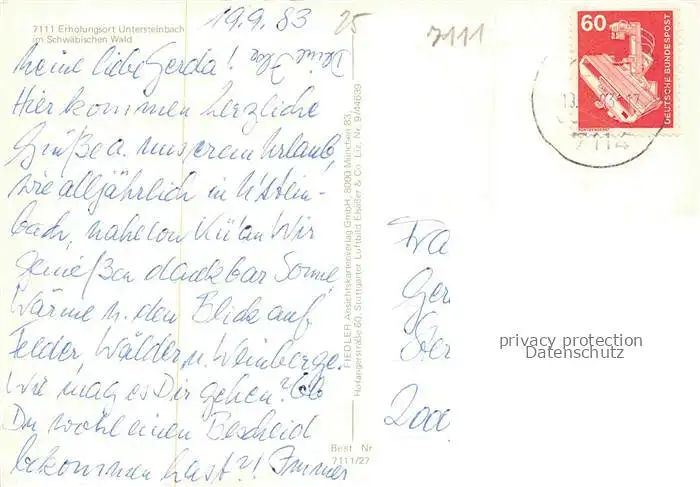 7111 Erholungsort Untersteinbach
im Schwäbischen Wald
19.9.83
25
7111
Meine liebe Gerda!
Deine Ilse
Hier kommen herzliche
Grüße a. unserem Urlaub,
wie alljährlich in U'stein-
bach, nahe von Kü'au Wir
genießen dankbar Sonne,
Wärme u. den Blick auf
Felder, Wälder u. Weinberge.
Wie mag es Dir gehen? Ob
Du wohl einen Bescheid
bekommen hast?! Immer
FIEDLER Ansichtskartenverlag GmbH, 8000 München 83,
Hofangerstraße 60, Stuttgarter Luftbild Elsäßer & Co. Liz. Nr. 9/44639
Best Nr
7111/27
60
DEUTSCHE BUNDESPOST
7112
Fra
Ger
2000
privacy protection
Datenschutz